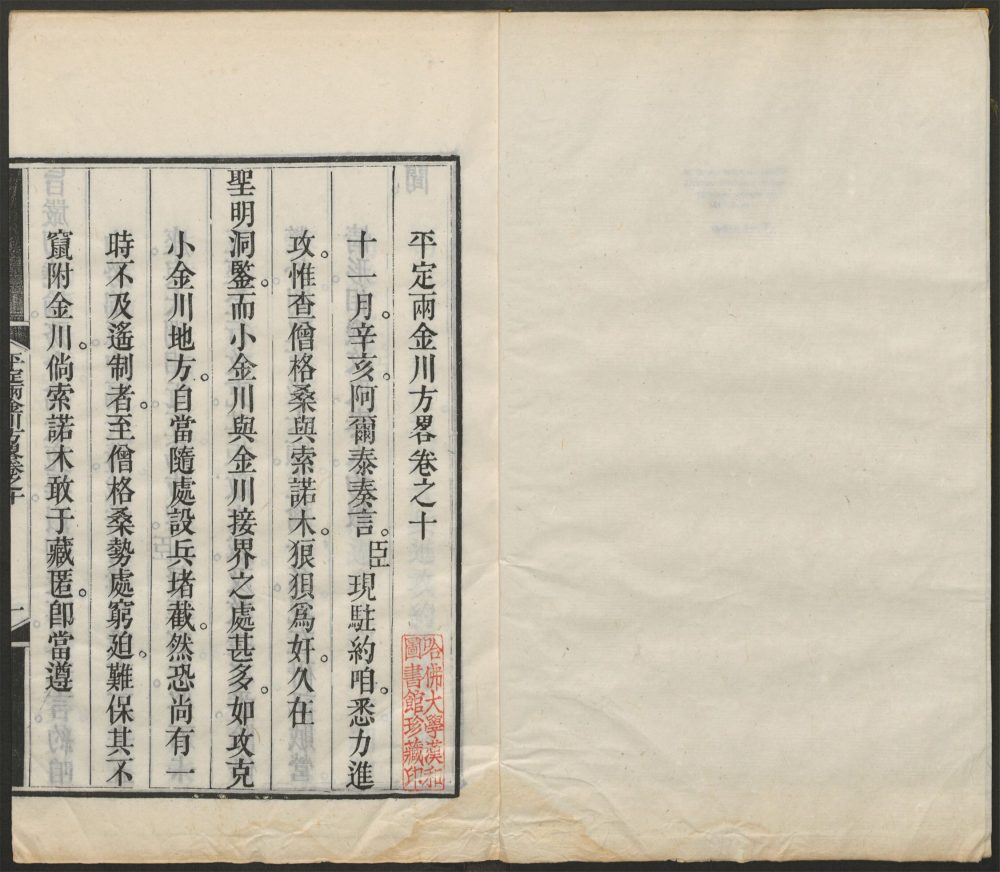 平定兩金川方畧卷之十
十一月辛亥阿爾泰奏言。臣現駐約咱。悉力進
攻。惟查僧格桑與索諾木。狼狽為奸。久在
聖明洞鑒。而小金川與金川接界之處甚多。如攻克
小金川地方。自當隨處設兵堵截。然恐尚有一
時不及遙制者。至僧格桑勢處窮廹。難保其不
竄附金川。倘索諾木敢于藏匿。卽當遵
平定兩金川方畧卷之十
一
哈佛大學漢和
圖書館珍藏印